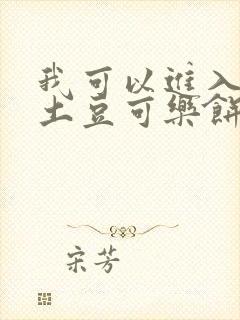 我可以進入
土豆可樂餅
宋芳